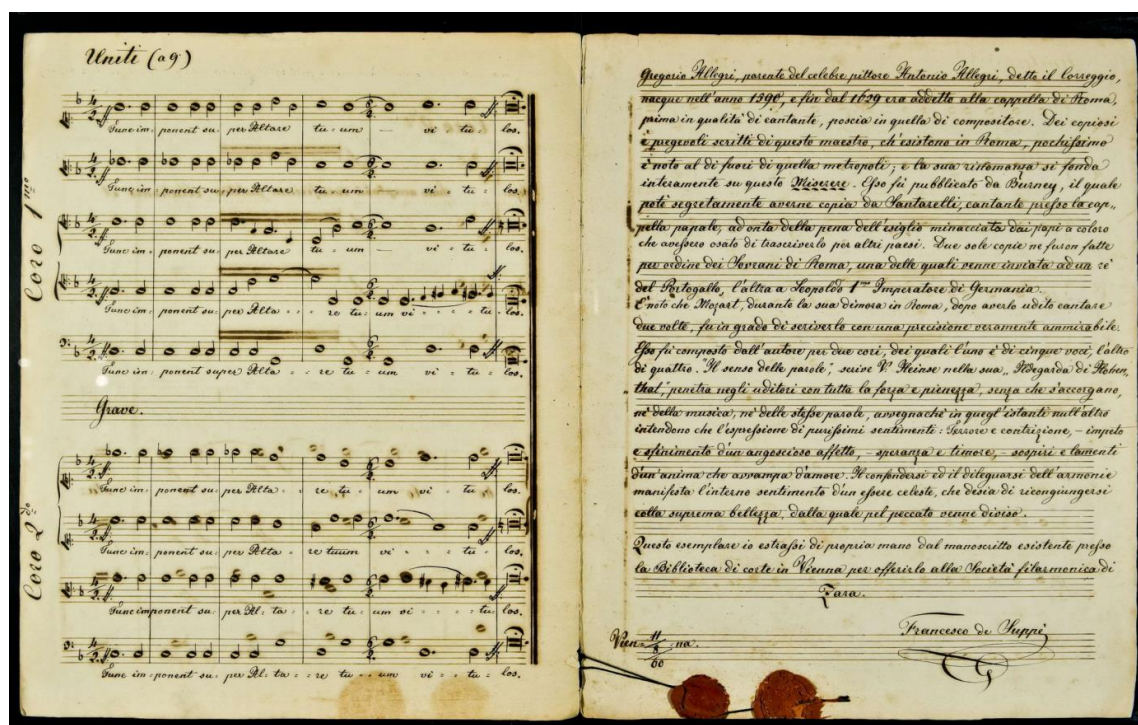 Uniti (a 9)
Coro 1mo
Tunc im = ponent su = per Altare tu = um — vi = tu = los.
Tunc im = ponent su = per Altare tu = um vi = tu = los.
Tunc im = ponent su = per Altare tu = um — vi = tu = los.
Tunc im = ponent su = per Alta = = re tu = um vi = = = tu = los.
Tunc im = ponent super Alta = = re tu = um vi = tu = los.
Grave.
Coro 2do
Tunc im = ponent su = per Alta = = re tu = um vi = tu = los.
Tunc im = ponent su = per Alta = re tuum vi = = = tu = los.
Tunc imponent su = per Al = ta = = re tu = um vi = = = tu = los.
Tunc im = ponent su = per Al = ta = = re tu = um vi = tu = los.
Gregorio Allegri, parente del celebre pittore Antonio Allegri, detto il Correggio,
nacque nell'anno 1590, e fin dal 1629 era addetto alla cappella di Roma,
prima in qualità di cantante, poscia in quella di compositore. Dei copiosi
e pregevoli scritti di questo maestro, ch'esistono in Roma, pochissimo
è noto al di fuori di quella metropoli; e la sua rinomanza si fonda
interamente su questo Miserere. Esso fu pubblicato da Burney, il quale
potè segretamente averne copia da Santarelli, cantante presso la cap„
pella papale, ad onta della pena dell'esiglio minacciata dai papi a coloro
che avessero osato di trascriverlo per altri paesi. Due sole copie ne furon fatte
per ordine dei Sovrani di Roma, una delle quali venne inviata ad un re
del Portogallo, l'altra a Leopoldo 1mo Imperatore di Germania.
È noto che Mozart, durante la sua dimora in Roma, dopo averlo udito cantare
due volte, fu in grado di scriverlo con una precisione veramente ammirabile.
Esso fu composto dall'autore per due cori, dei quali l'uno è di cinque voci, l'altro
di quattro. "Il senso delle parole", scrive V. Heinse nella sua „ Ildegarda di Hohen„
thal", penetra negli uditori con tutta la forza e pienezza, senza che s'accorgano,
nè della musica, nè delle stesse parole, avvegnachè in quegl'istanti null'altro
intendono che l'espressione di purissimi sentimenti: Terrore e contrizione, – impeto
e sfinimento d'un angoscioso affetto, – speranza e timore, – sospiri e lamenti
d'un'anima che avvampa d'amore. Il confondersi ed il dileguarsi dell'armonie
manifesta l'interno sentimento d'un essere celeste, che desia di ricongiungersi
colla suprema bellezza, dalla quale pel peccato venne diviso.
Questo esemplare io estrassi di propria mano dal manoscritto esistente presso
la Biblioteca di corte in Vienna per offerirlo alla Società filarmonica di
Zara.
Francesco de Suppé
Vien 11/9 na.
60